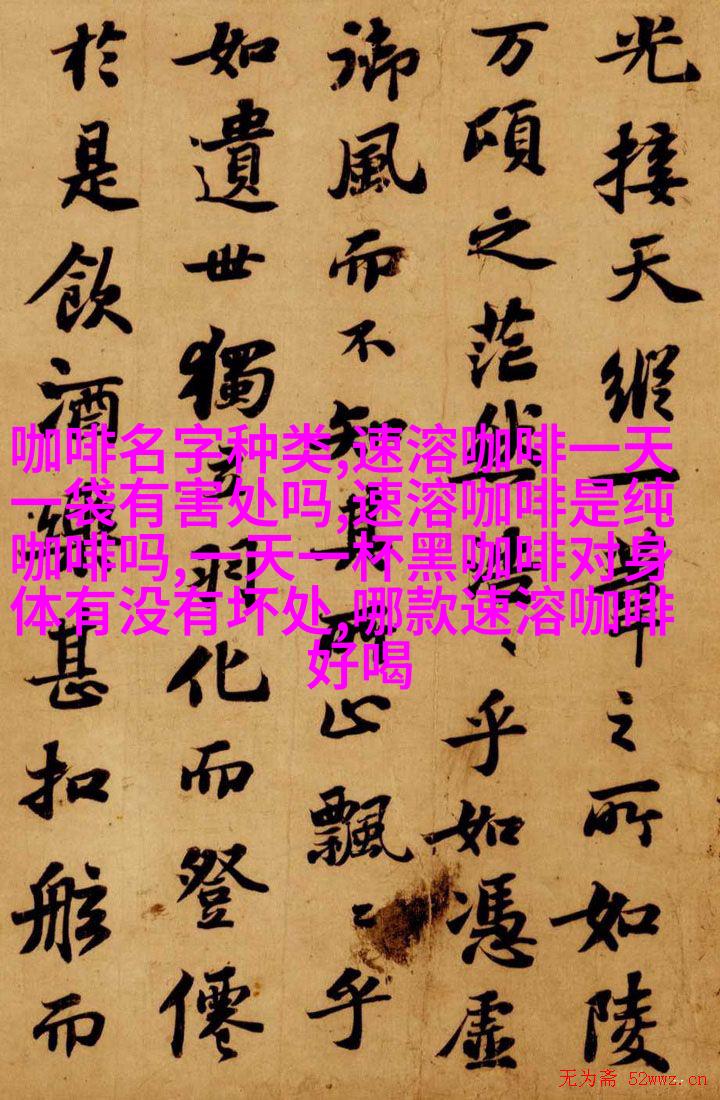 光接天縱一葦之所如陵
万頃之茫然浩〻乎如憑虛
御風而不知其所止飄〻乎
如遺世獨立羽化而登僊
於是飲酒樂甚扣舷而
咖啡名字种类,速溶咖啡一天
一袋有害处吗,速溶咖啡是纯
咖啡吗,一天一杯黑咖啡对身
体有没有坏处,哪款速溶咖啡
好喝
无为斋 52wwz.cn